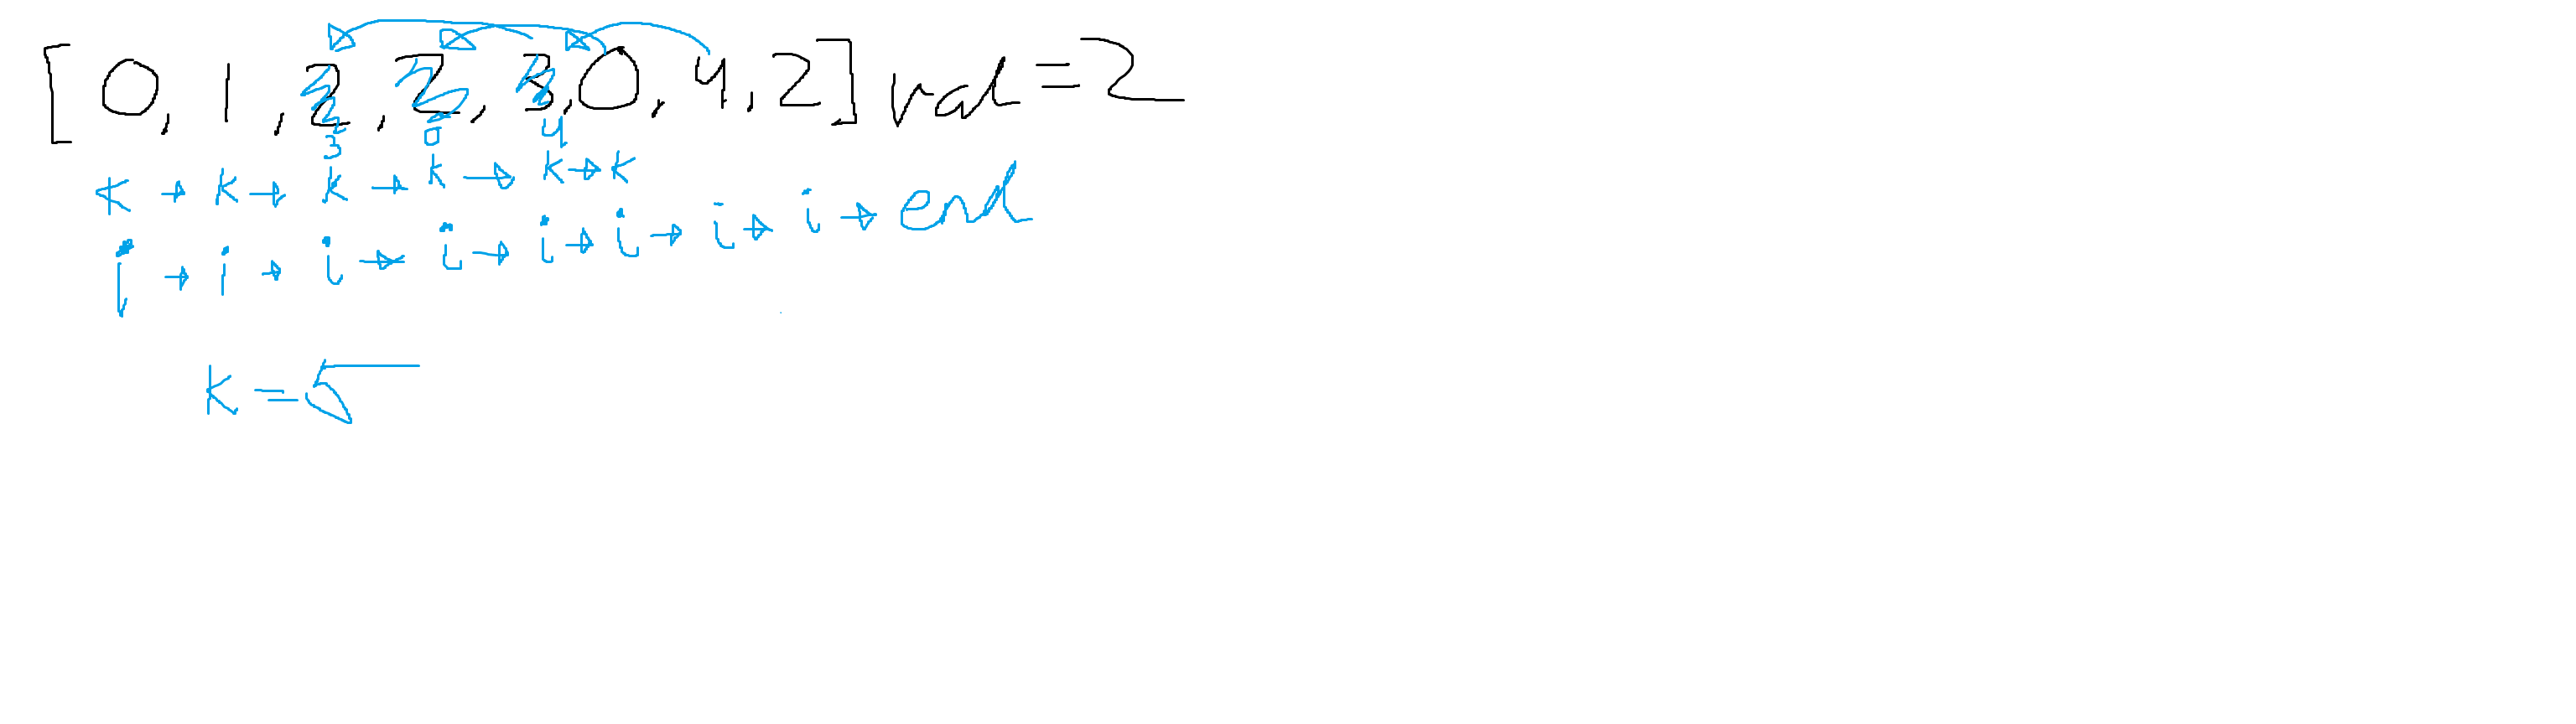 [0, 1, 2, 2, 3, 0, 4, 2] val = 2
3 0 4
k → k → k → k → k → k
i → i → i → i → i → i → i → i → end
k = 5